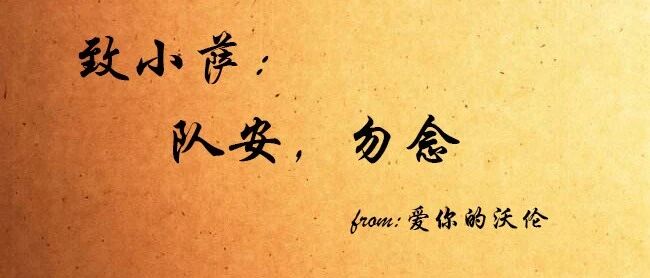 致小萨：
队安，勿念
from:爱你的沃伦